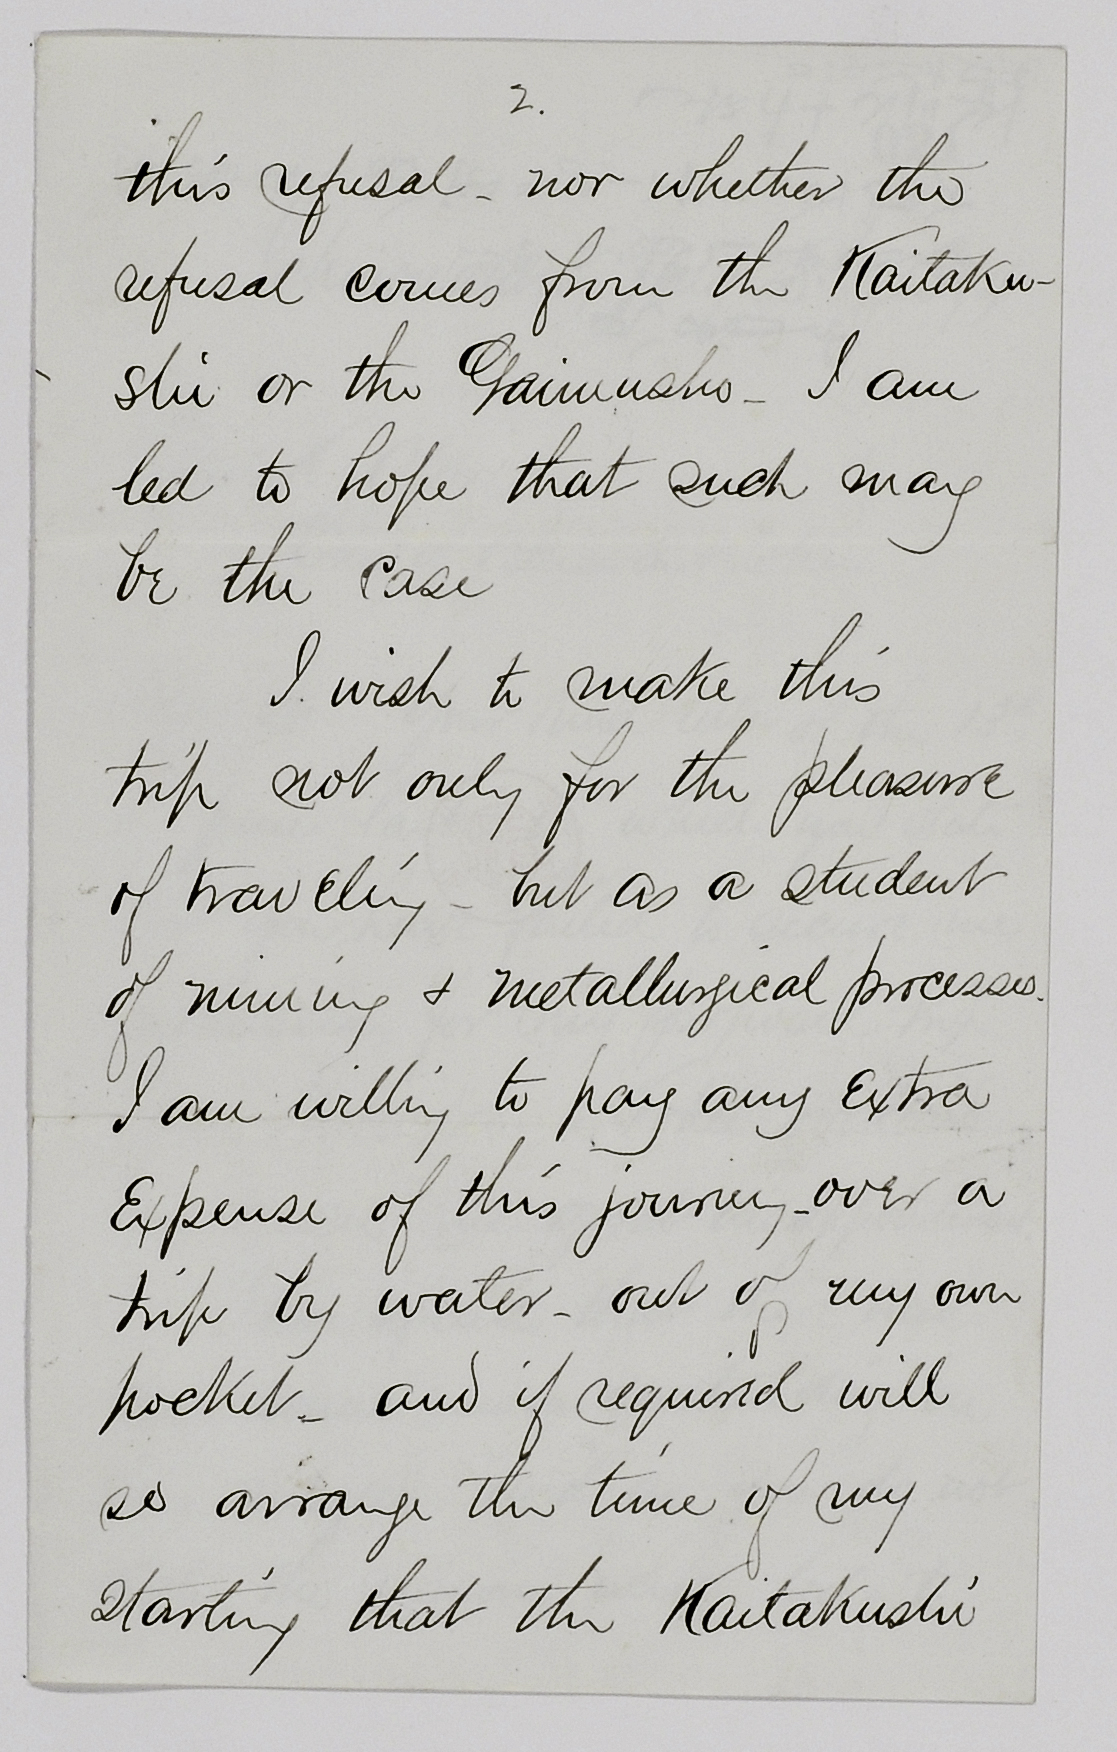 2.
this refusal - nor whether the
refusal comes from the Kaitaku-
shi or the Gaimusho - I am
led to hope that such may
be the case
I wish to make this
trip not only for the pleasure
of traveling - but as a student
of mining & metallurgical processes.
I am willing to pay any Extra
Expense of this journey - over a
trip by water - out of my own
pocket - and if required will
so arrange the time of my
starting that the Kaitakushi